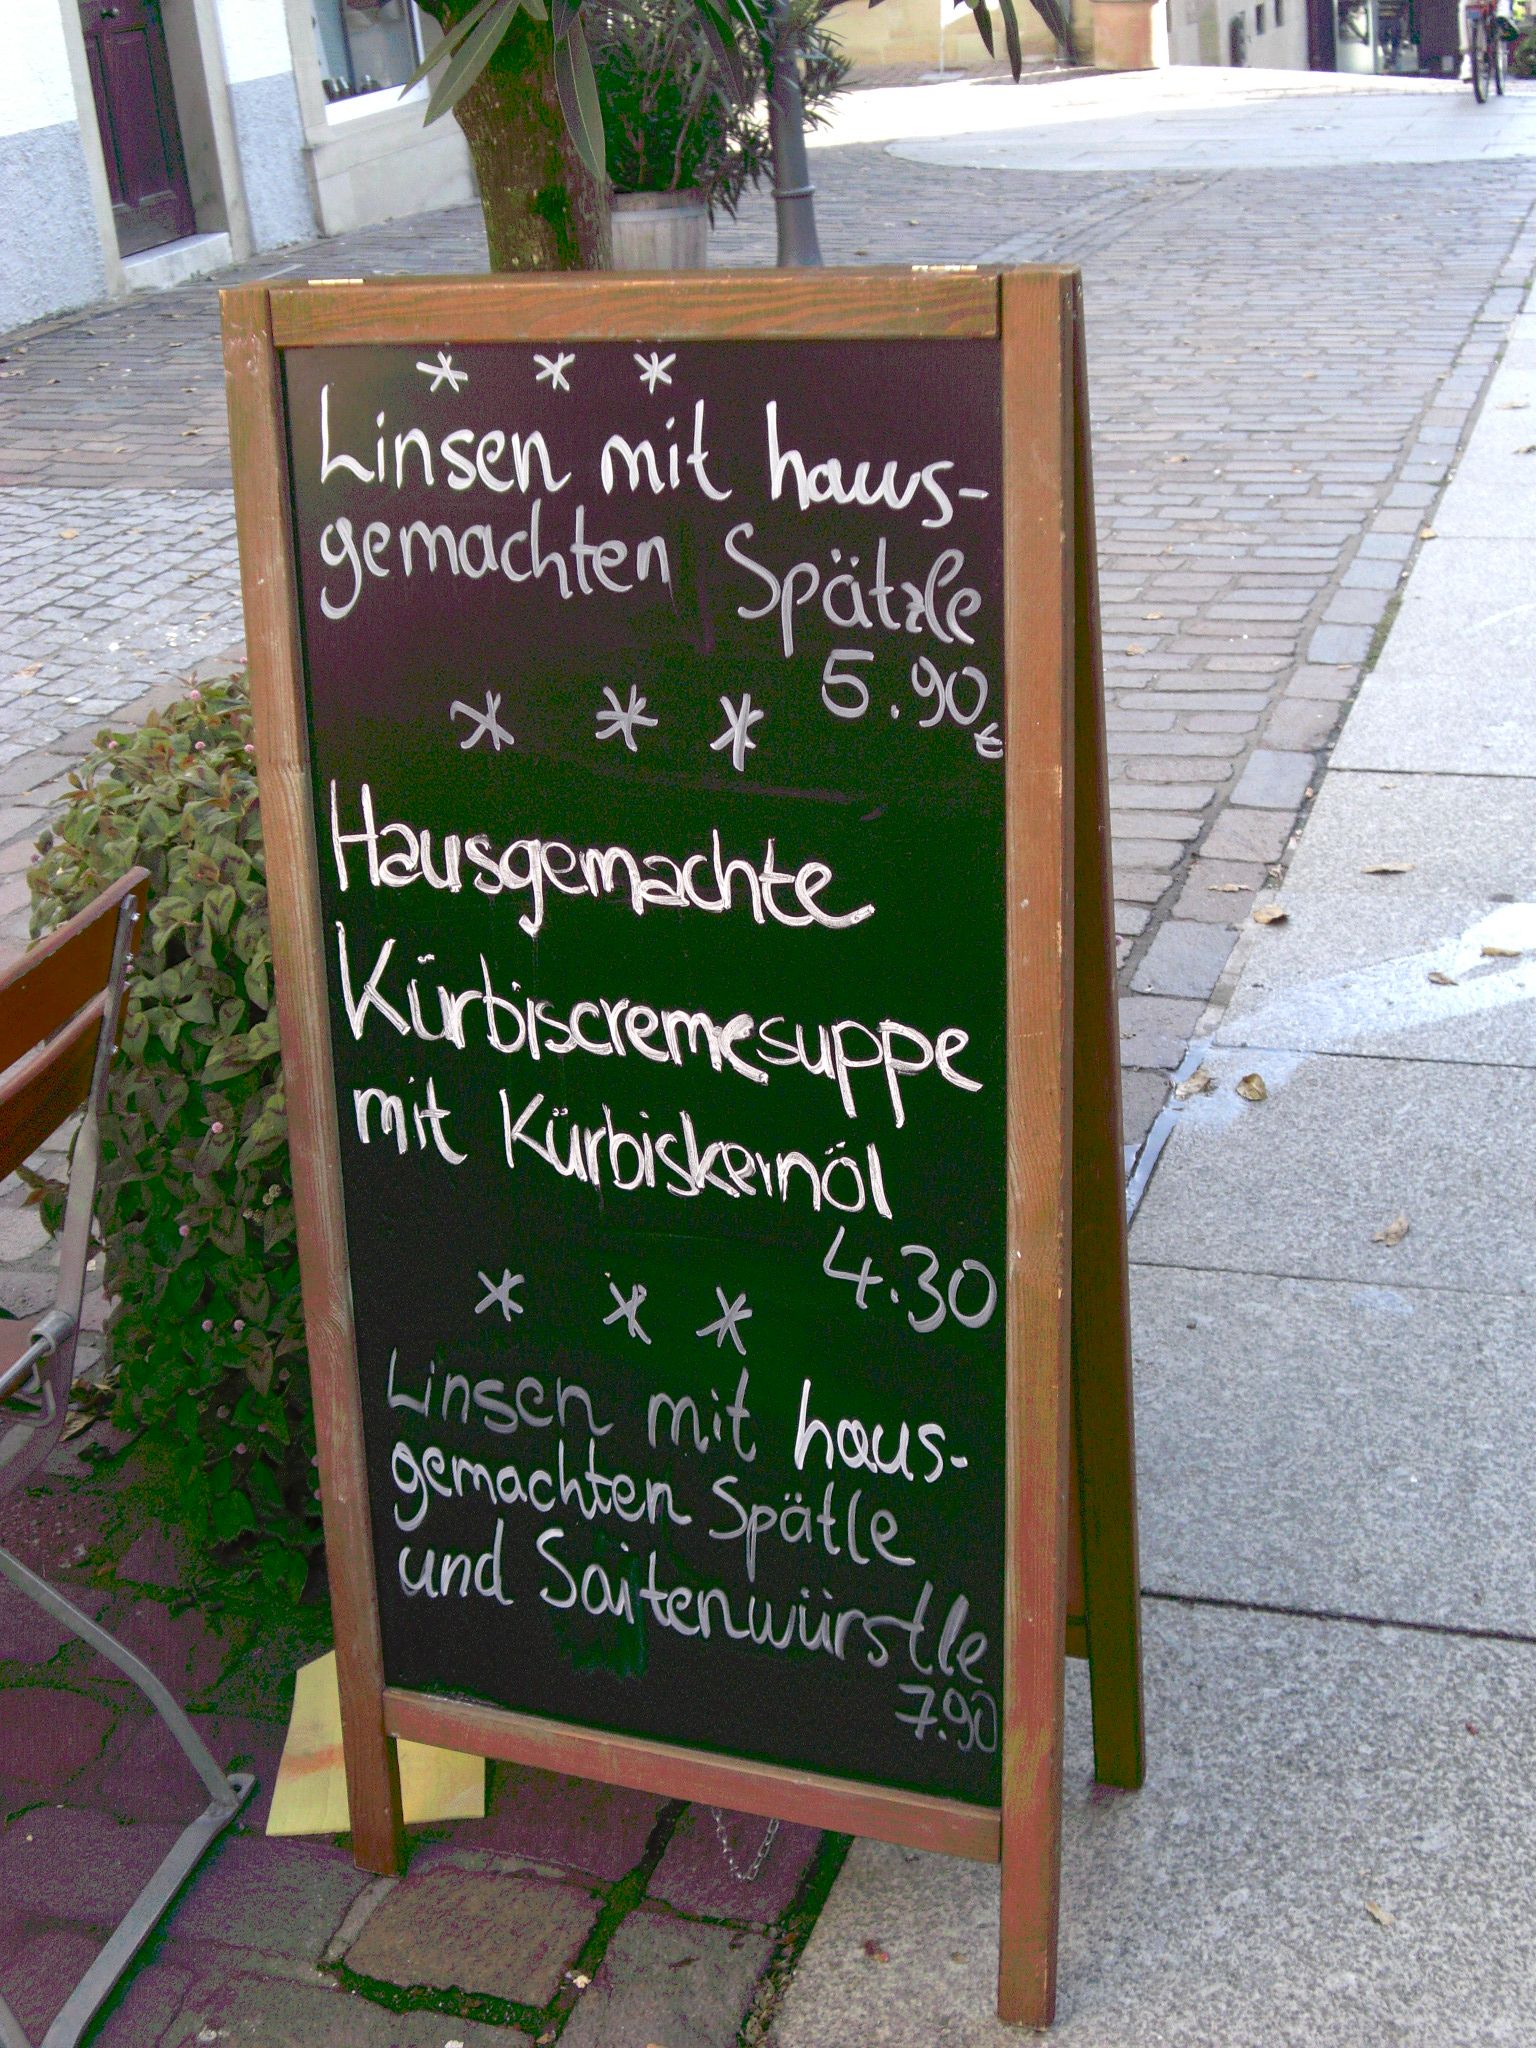 * * *
Linsen mit haus-
gemachten Spätzle
5.90€
* * *
Hausgemachte
Kürbiscremesuppe
mit Kürbiskernöl
4.30
* * *
Linsen mit haus-
gemachten Spätle
und Saitenwürstle
7.90